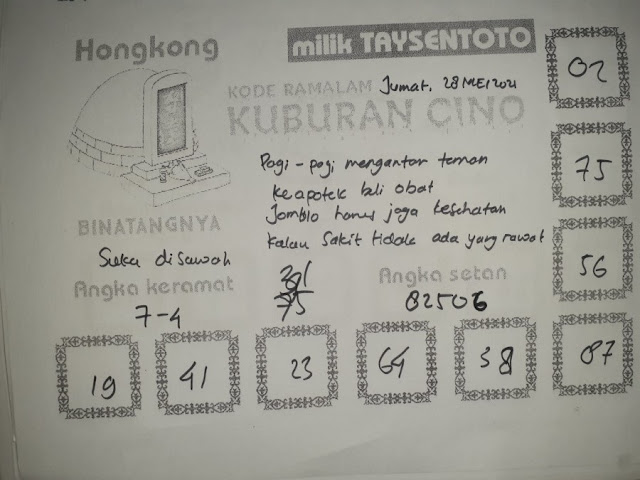 Hongkong
milik TAYSENTOTO
KODE RAMALAM Jumat, 28 MEI 2021
KUBURAN CINO
Pagi - pagi mengantar teman
ke apotek bli obat
Jomblo harus jaga kesehatan
Kalau Sakit tidak ada yang rawat
BINATANGNYA
Suka disawah
Angka keramat
7-4
75
Angka setan
82506
02
75
56
87
19
41
23
64
38